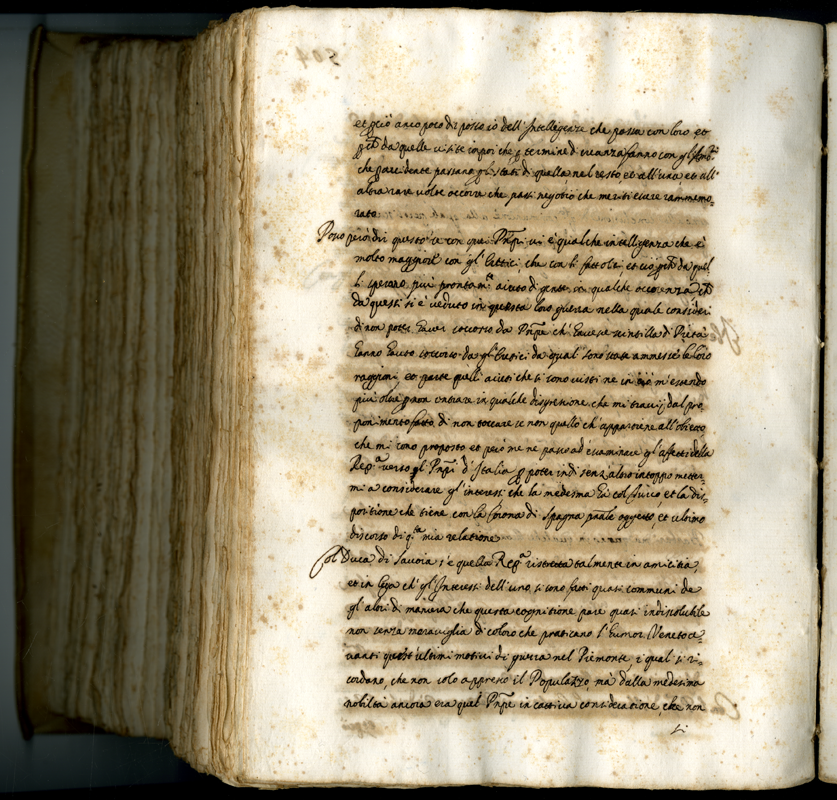 et p ciò anco poco di posso io dell'Intelligenze che passa con loro et
da quelle visite in poi che p termine di creanza fanno con gl'Amb.ri
che p accidente passano p li stati di quella, nel resto, et all'una, et all'
altra rare volte occorre che passi negotio che meriti esser rammemo-
rato.
Posso però dir questo se con quei Pnpi vi è qualche intelligenza che è
molto maggiore con gl'Eretici, che con li Cattolici et ciò da quel
li sperano più prontam.te aiuto di gente in qualche occorenza
da questi si è veduto in questa loro guerra nella quale consideri
di non poter haver soccorso da Pnpe ch'havesse scintilla di Pietà
hanno havuto soccorso da gl'Eretici da qual' sono state ammesse le loro
raggioni, et parte quelli aiuti che si sono visti ne in ciò m'estendo
più oltre p non entrare in qualche digressione che mi travij dal pro-
ponimento fatto di non toccare se non quello ch'appartiene all'obietto
che mi sono proposto et però me ne passo ad essaminare gl'affetti della
Rep.ca verso gl'Pnpi d'Italia p poter indi senz'altro intoppo metter-
mi a considerare gl'interessi che la medesma hà col Turco, et la dis-
positione che tiene con la Corona di Spagna oggetto, et ultimo
discorso di q.ta mia relatione
Col Duca di Savoia s'è quella Rep.ca ristretta talmente in amicitia,
et in Lega ch'gl'Interessi dell'uno si sono fatti quasi communi de
gl'altri di maniera che questa cognitione pare quasi indissolubile
non senza meraviglia di coloro che praticano l'humor Veneto a-
vanti quest'ultimi motivi di guerra nel Piemonte, i quali si ri-
cordano, che non solo appresso il Populazzo, mà dalla medesima
nobiltà ancora era quel Pnpe in cattiva consideratione, che non
si